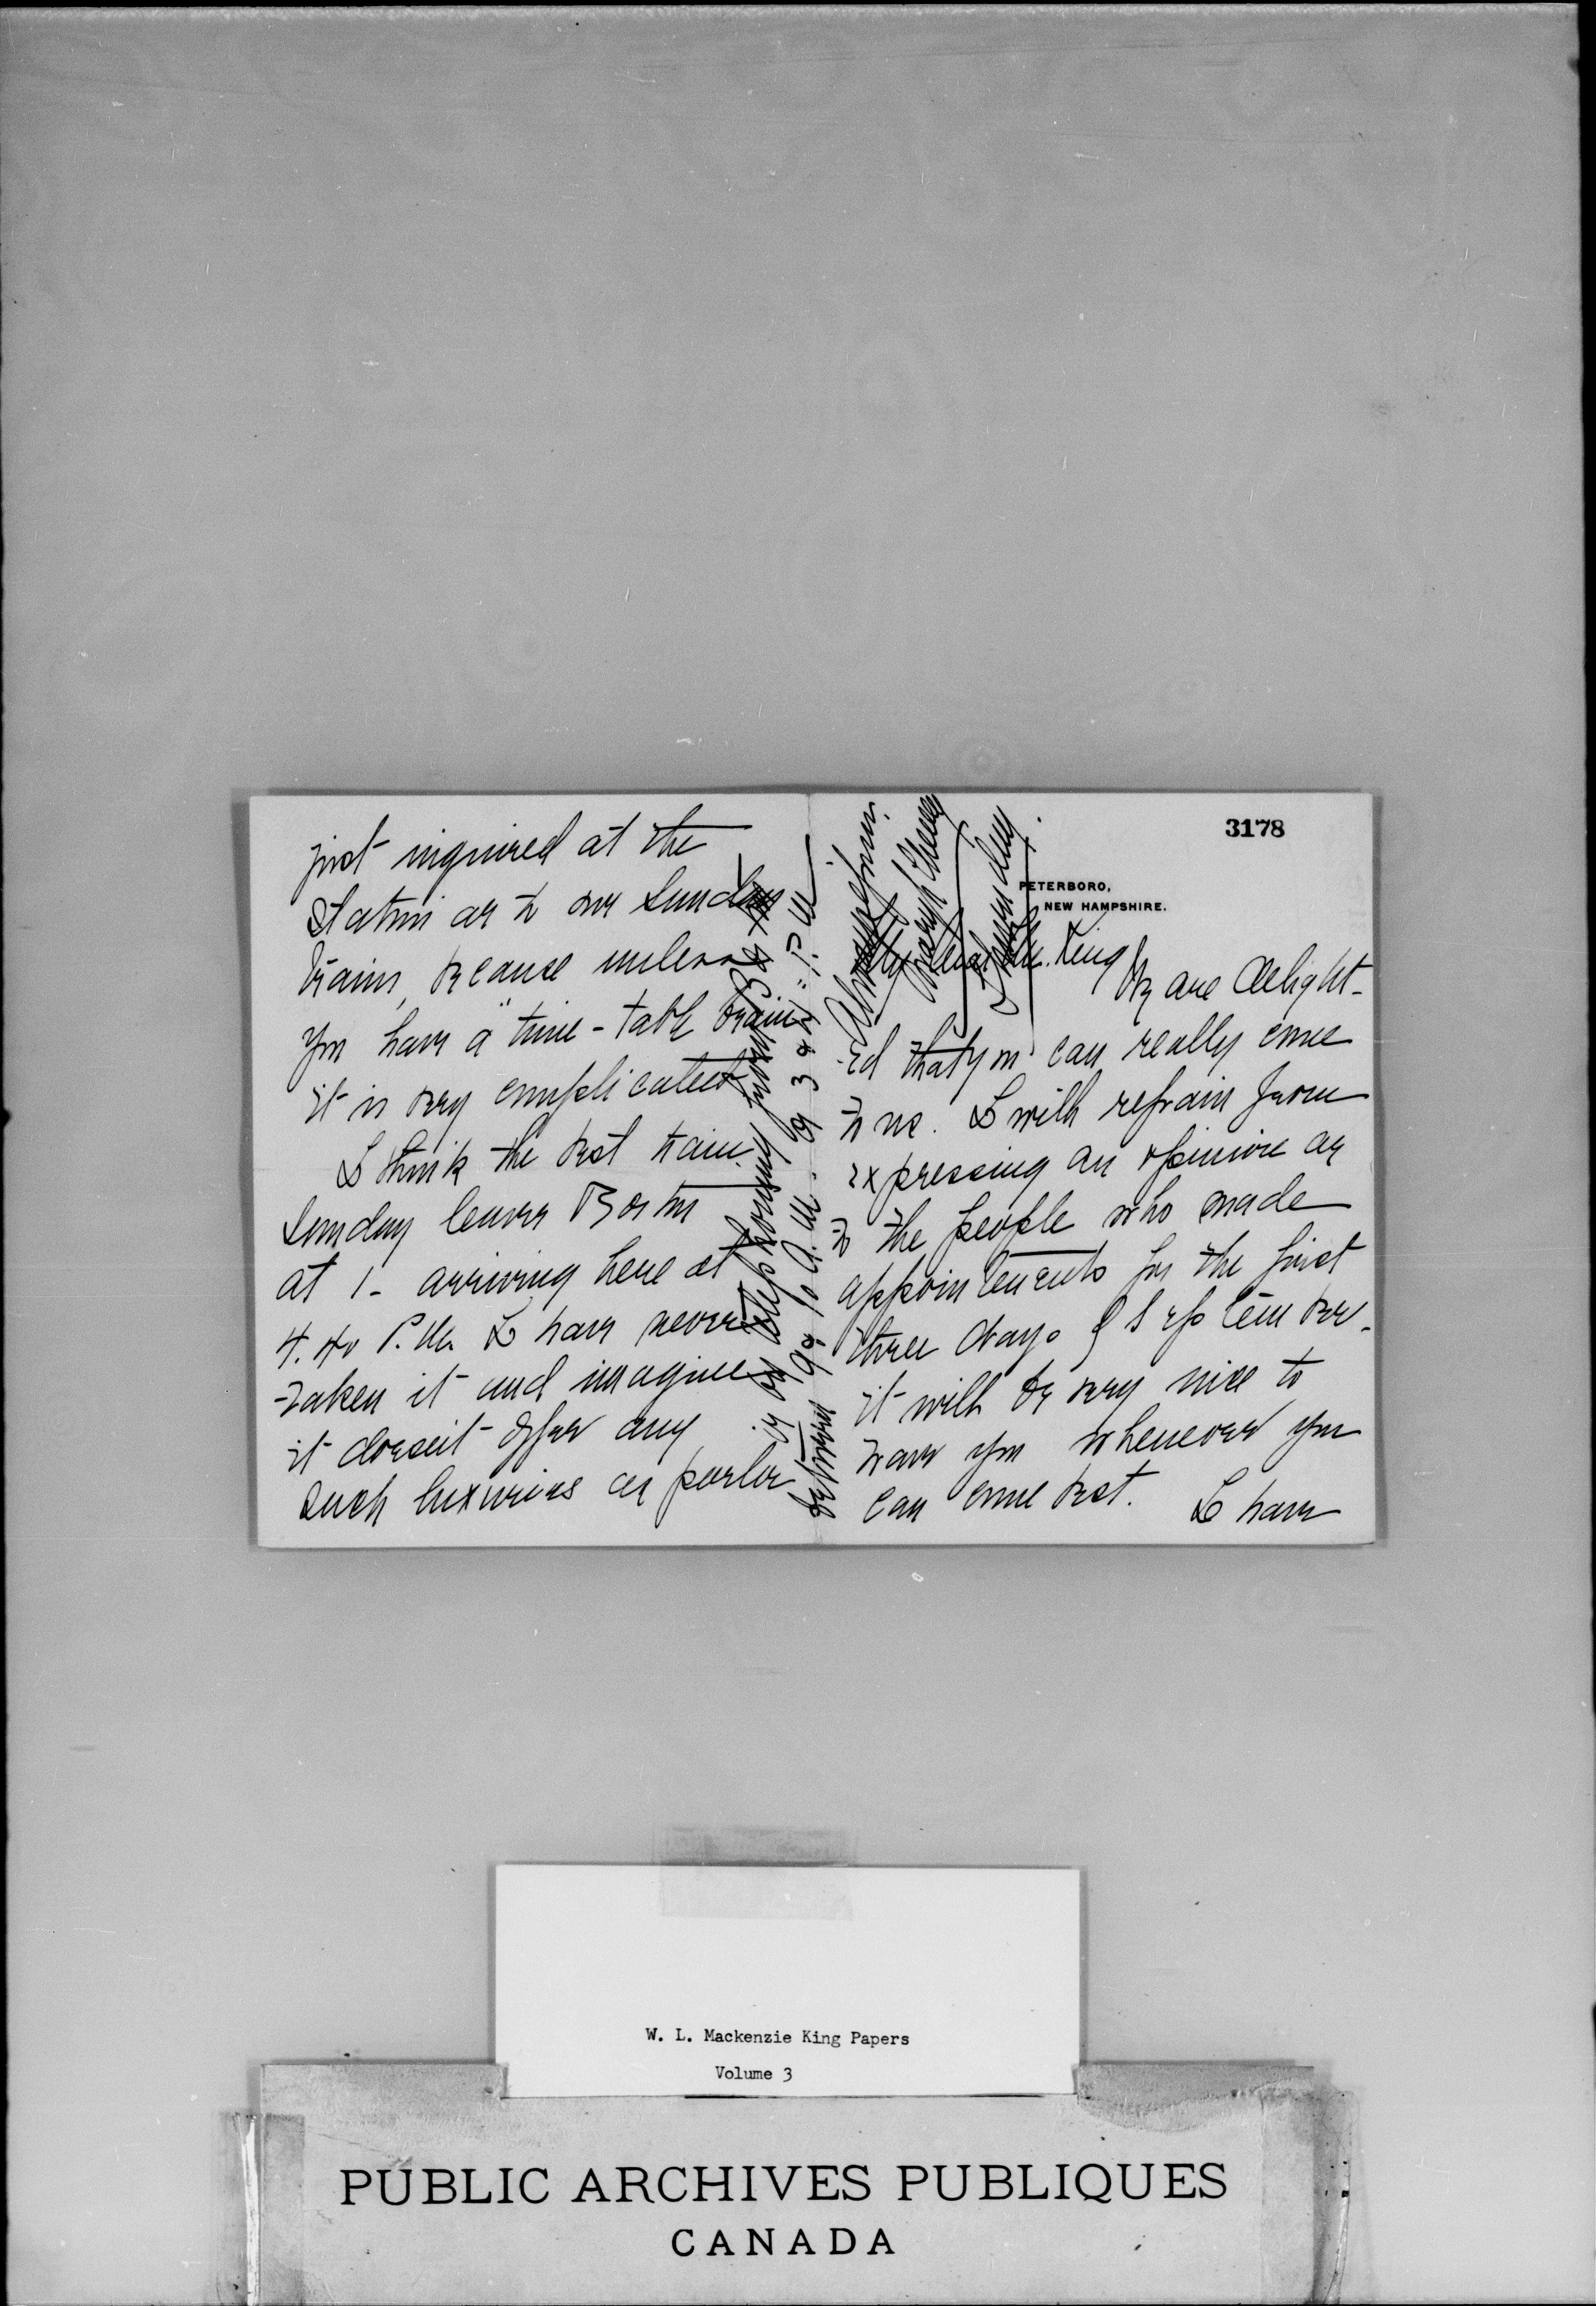 3178
PETERBORO,
NEW HAMPSHIRE.
My dear Mr. King
We are delight-
ed that you can really come
to us. I will refrain from
expressing an opinion as
to the people who made
appointments for the first
three days of September.
it will be very nice to
have you whenever you
can come best. I have
just inquired at the
station as to our Sunday
trains, because unless
you have a "time-table brain"
it is very complicated.
I think the best train
Sunday leaves Boston
at 1 - arriving here at
4.40 P.M. I have never
taken it and imagine
it doesn't offer any
such luxuries as parlor
is by telephoning from
between 9 & 10 A.M. or 3 & 4 P.M.
Always yours
Thursday.
W. L. Mackenzie King Papers
Volume 3
PUBLIC ARCHIVES PUBLIQUES
CANADA